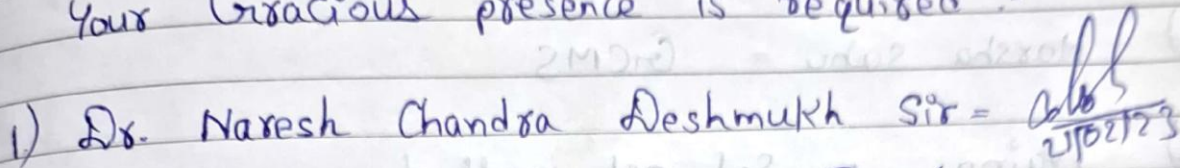 Your Gracious presence is required.
1.) Dr. Naresh Chandra Deshmukh Sir =
21/02/23